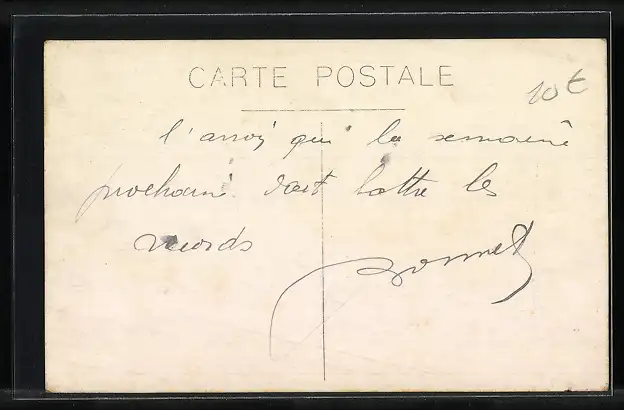 CARTE POSTALE
10€
l'envoi qui la semaine
prochaine doit battre les
records
Bonnet